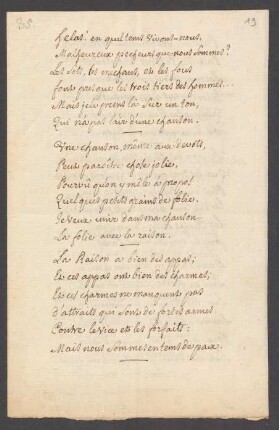 85
19
helas! en quel tems vivons-nous,
Malheureux pecheurs que nous sommes?
Les sots, les mechans, et les fous
font presque les trois tiers des hommes...
Mais je prens là d'ici un ton,
Qui n'a pas l'air d'une chanson.
Une chanson, même aux devots,
Peut paroître chose jolie,
Pourvû qu'on y mêle à propos
Quelques petits grains de folie.
Je veux unir dans ma chanson
La folie avec la raison.
La Raison a bien des appas;
Et ces appas ont bien des charmes;
Et ces charmes ne manquent pas
d'attraits qui sont de fortes armes
Contre le vice et les forfaits:
Mais nous sommes en tems de paix.